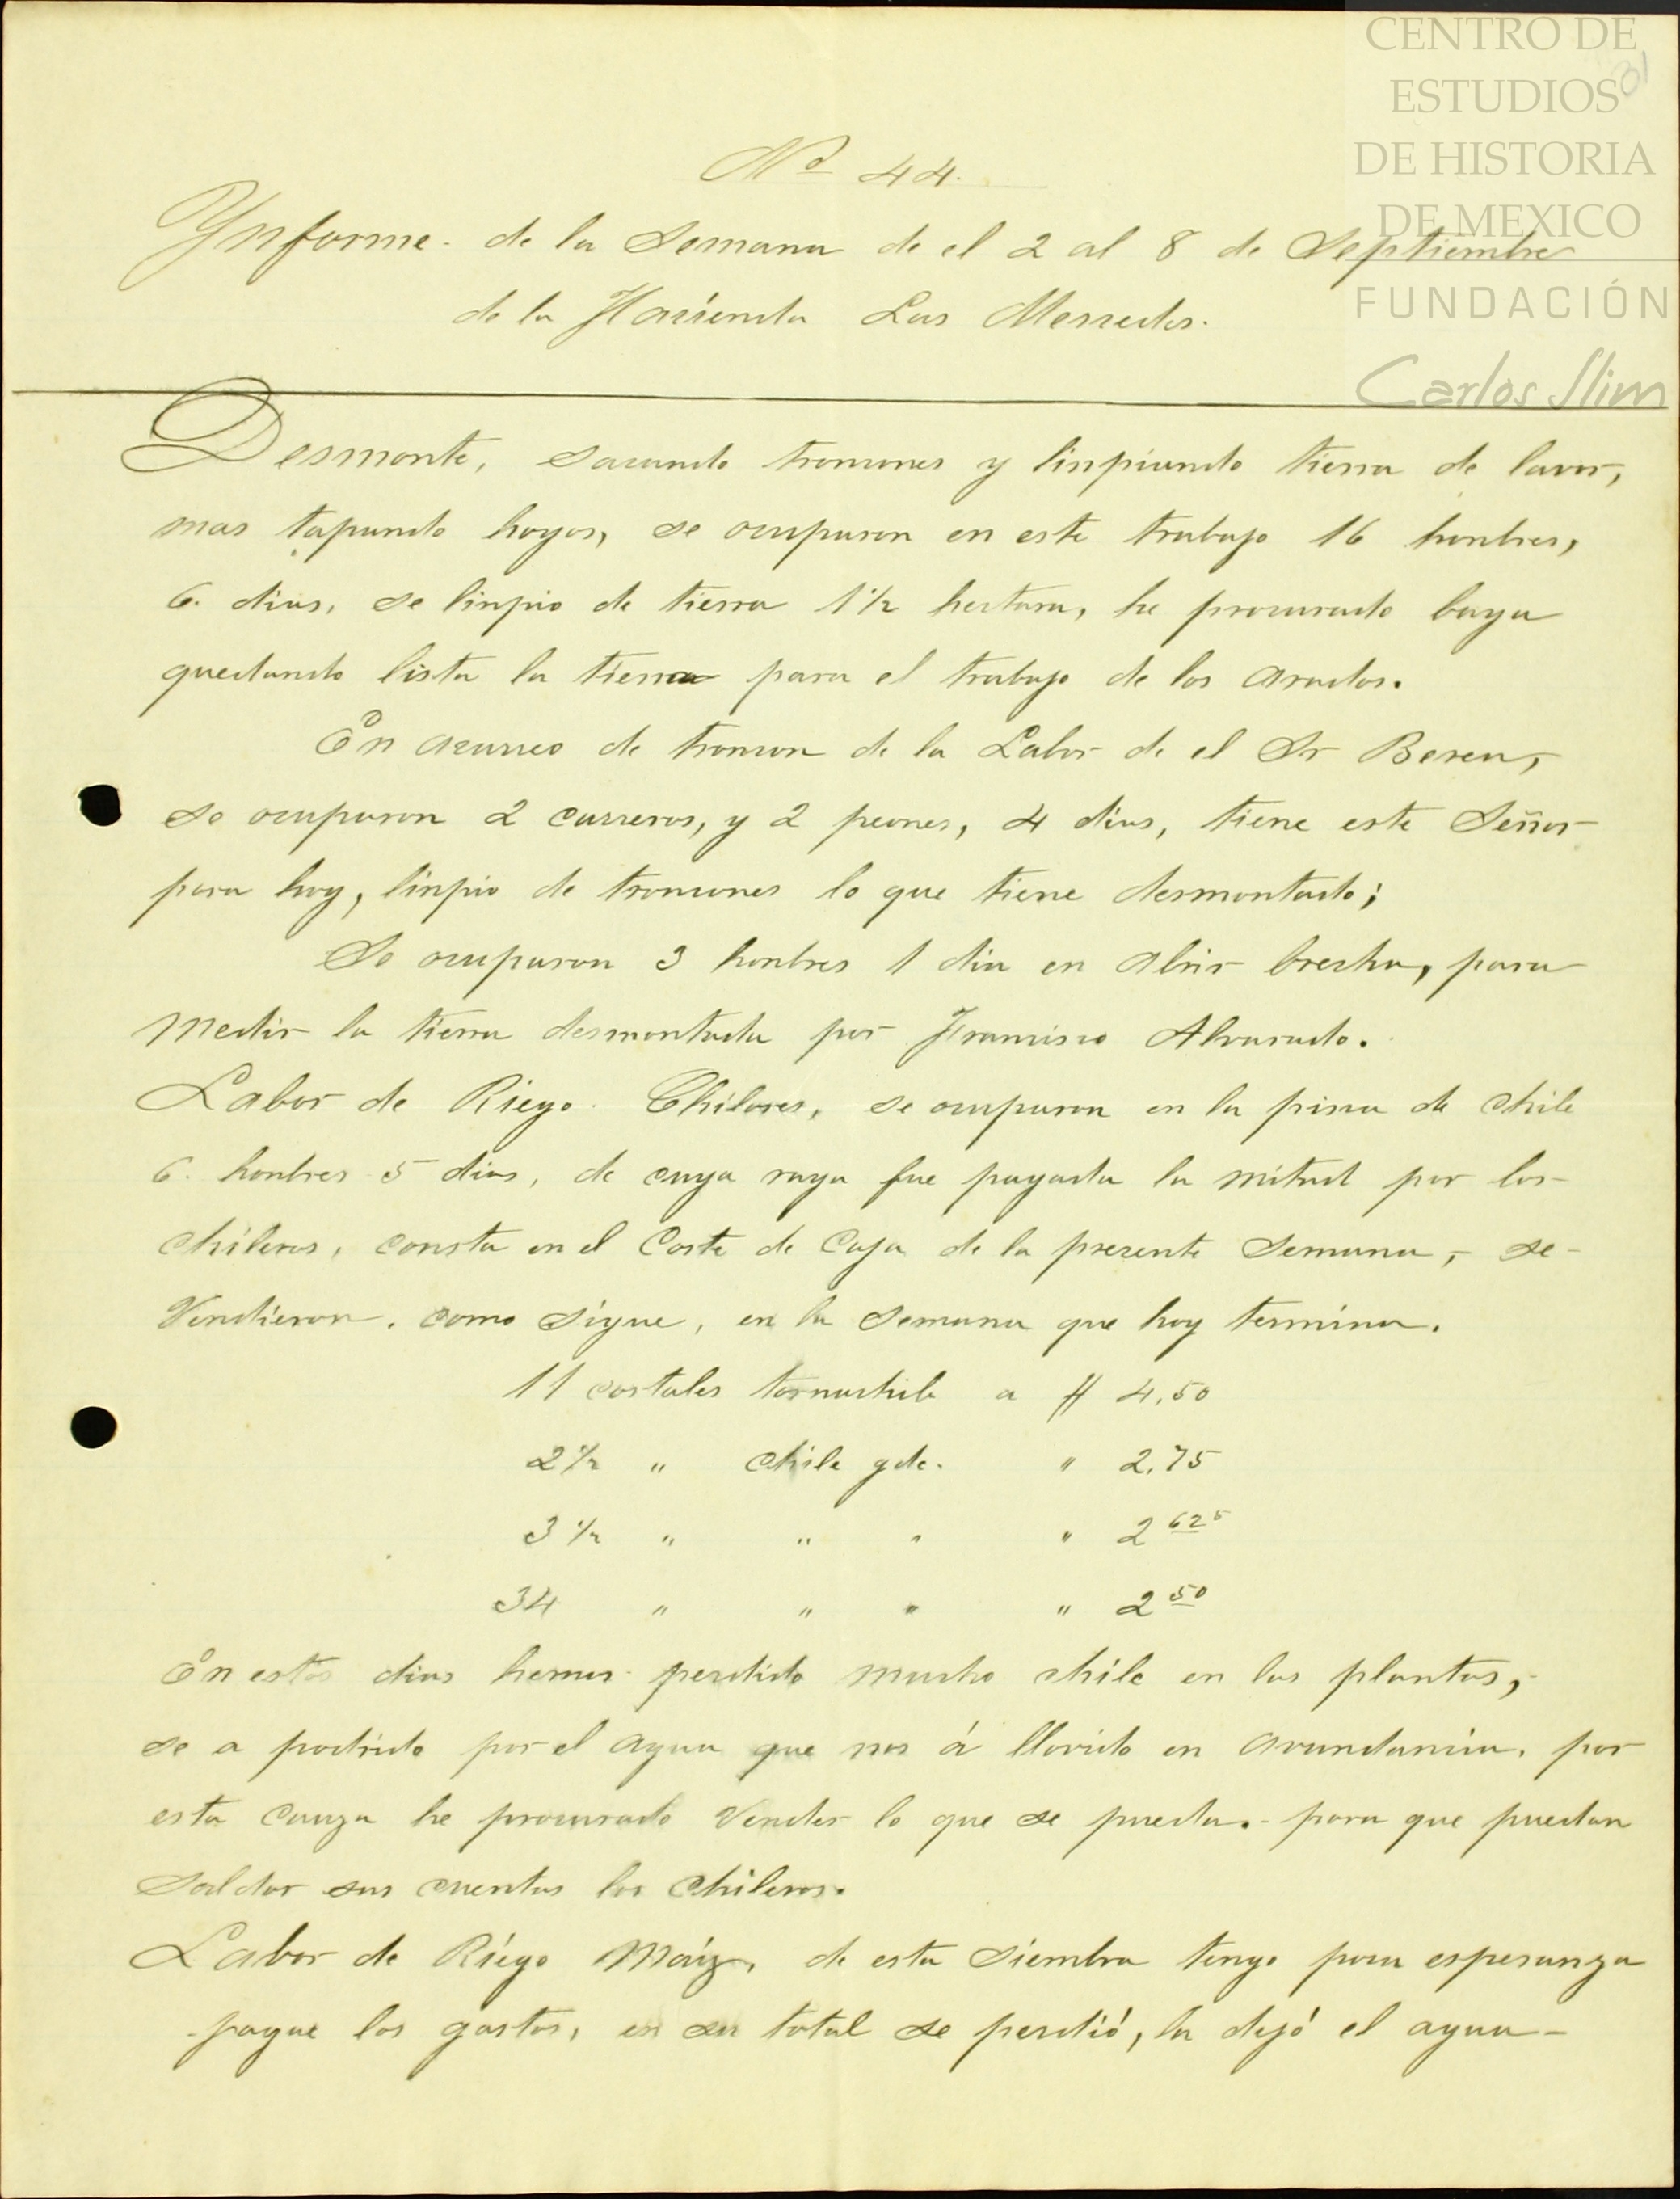 CENTRO DE
ESTUDIOS
DE HISTORIA
DE MEXICO
FUNDACIÓN
Carlos Slim
31
Nº 44.
Ynforme de la Semana de el 2 al 8 de Septiembre
de la Hacienda Las Mercedes.
Desmonte, sacando troncones y linpiando tierra de lavor,
mas tapando hoyos, se ocuparon en este trabajo 16 honbres,
6. dias, se linpio de tierra 1½ hectara, he procurado baya
quedando lista la tierra para el trabajo de los arados.
En acarreo de troncon de la Labor de el Sr Berea,
se ocuparon 2 carreros, y 2 peones, 4 dias, tiene este Señor
para hoy, linpio de troncones lo que tiene desmontado;
Se ocuparon 3 honbres 1 dia en abrir brecha, para
Medir la tierra desmontada por Francisco Alvarado.
Labor de Riego Chilares, se ocuparon en la pisca de chile
6. honbres 5 dias, de cuya raya fue pagada la mitad por los
chileros, consta en el Corte de Caja de la prezente Semana, se
Vendieron, como sigue, en la semana que hoy termina.
11 costales tornachile a $ 4.50
2½ " chile gde. " 2.75
3½ " " " " 2 625
34 " " " " 2 50
En estos dias hemos perdido mucho chile en las plantas,
se a podrido por el agua que nos á llovido en avundancia, por
esta cauza he procurado Vender lo que se pueda. para que puedan
Saldar sus cuentas los chileros.
Labor de Riego Maíz, de esta siembra tengo poca esperanza
pague los gastos, en su total se perdió, la dejó el agua